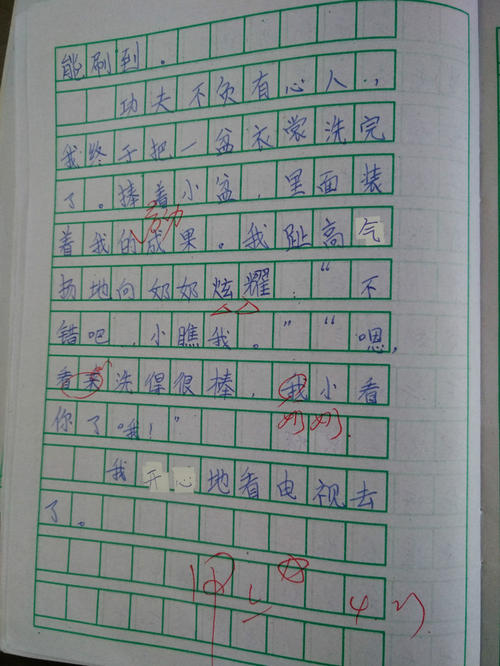 能刷到。
功夫不负有心人，
我终于把一盆衣裳洗完
了。捧着小盆，里面装
劳动
着我的成果。我趾高气
扬地向奶奶炫耀：“不
错吧，小瞧我。”“嗯，
看来洗得很棒，我小看
你了哦！”
奶奶
我开心地看电视去
了。